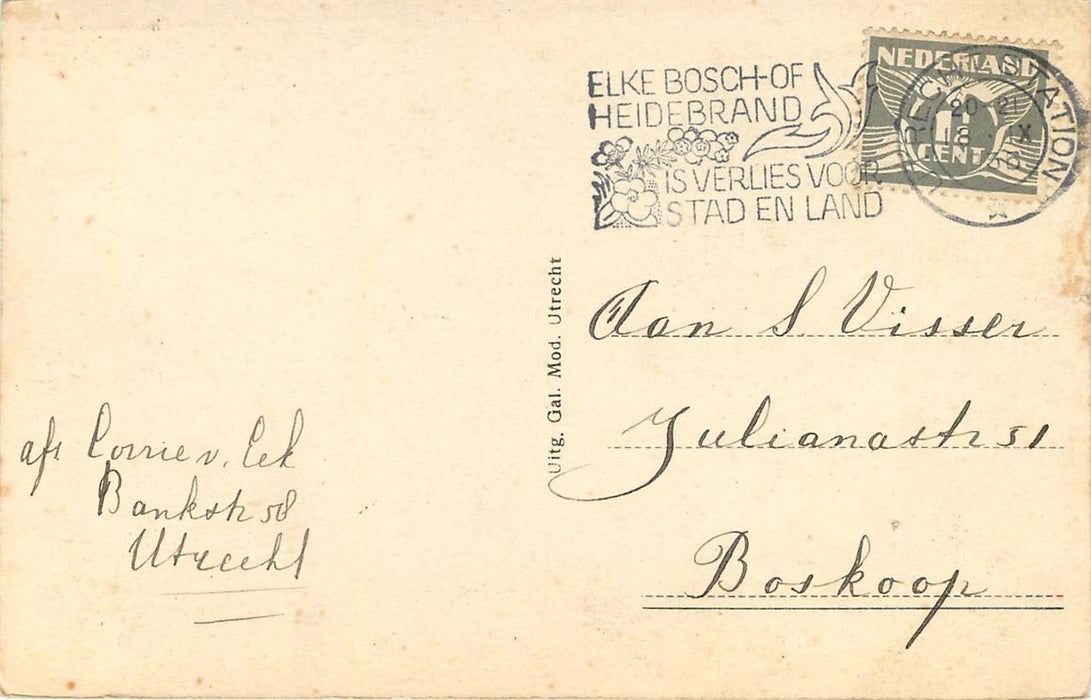 ELKE BOSCH-OF
HEIDEBRAND
IS VERLIES VOOR
STAD EN LAND
NEDERLAND
1½
CENT
UTRECHT STATION
20-21
18 IX
Uitg. Gal. Mod. Utrecht
Aan S Visser
Julianastr 51
Boskoop
afs Corrie v. Eek
Bankstr 58
Utrecht